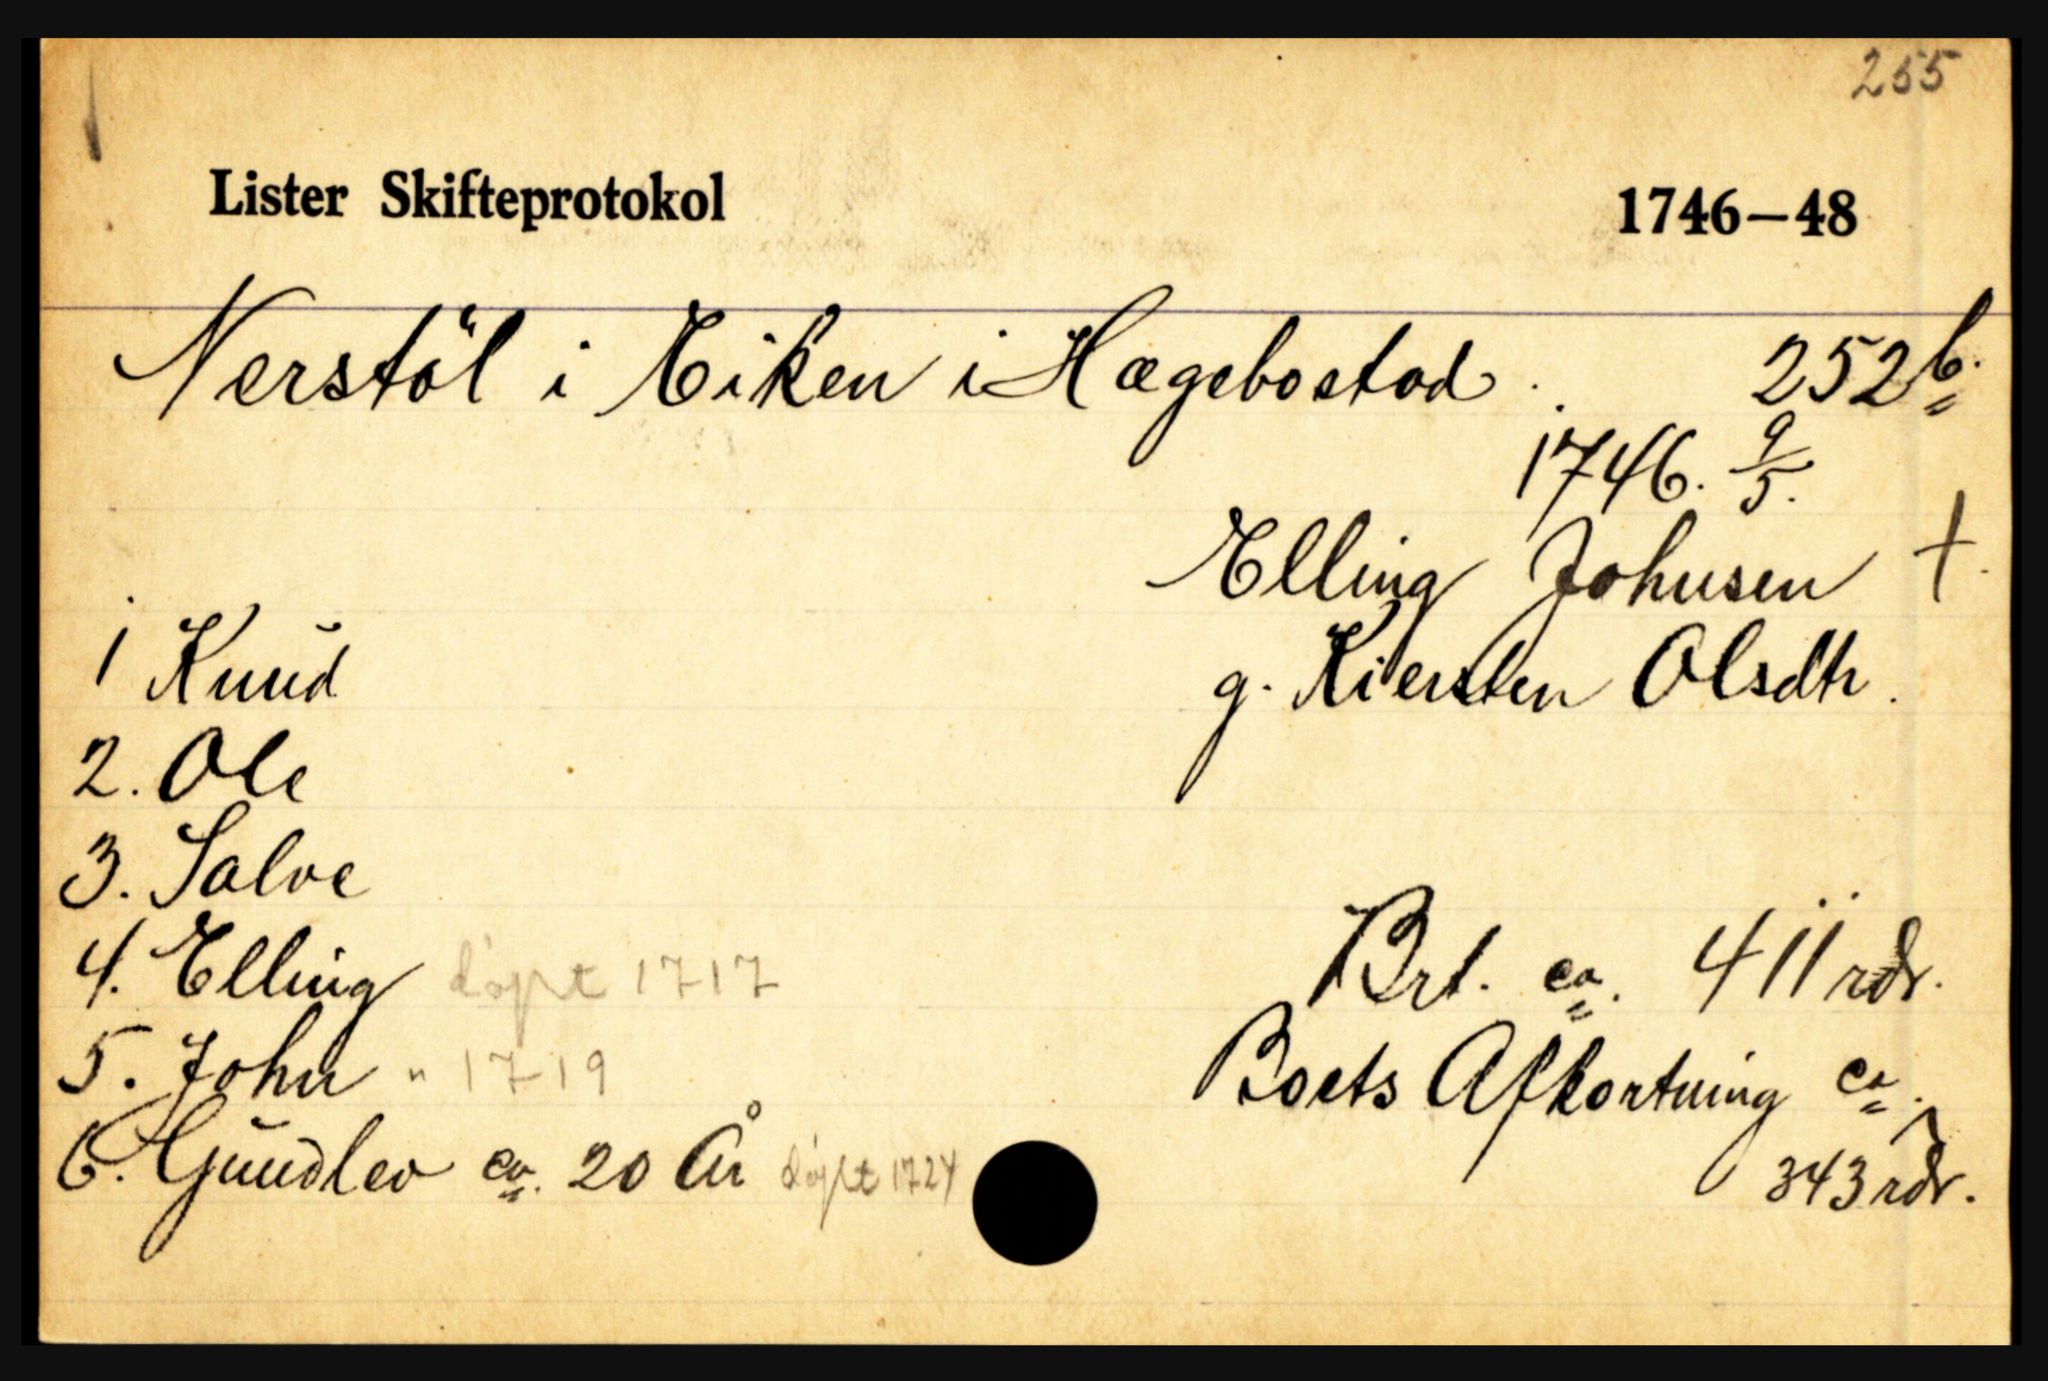 255
Lister Skifteprotokol 1746–48
Nerstöl i Eiken i Hægebostad. 252 b.
1746. 9/5.
Elling Johnsen †.
g. Kiersten Olsdtr.
1 Knud
2. Ole
3. Salve
4. Elling døpt 1717
5. John " 1719
6. Gundlev ca. 20 År døpt 1724
Brt. ca. 411 rdr.
Boets Afkortning ca.
343 rdr.